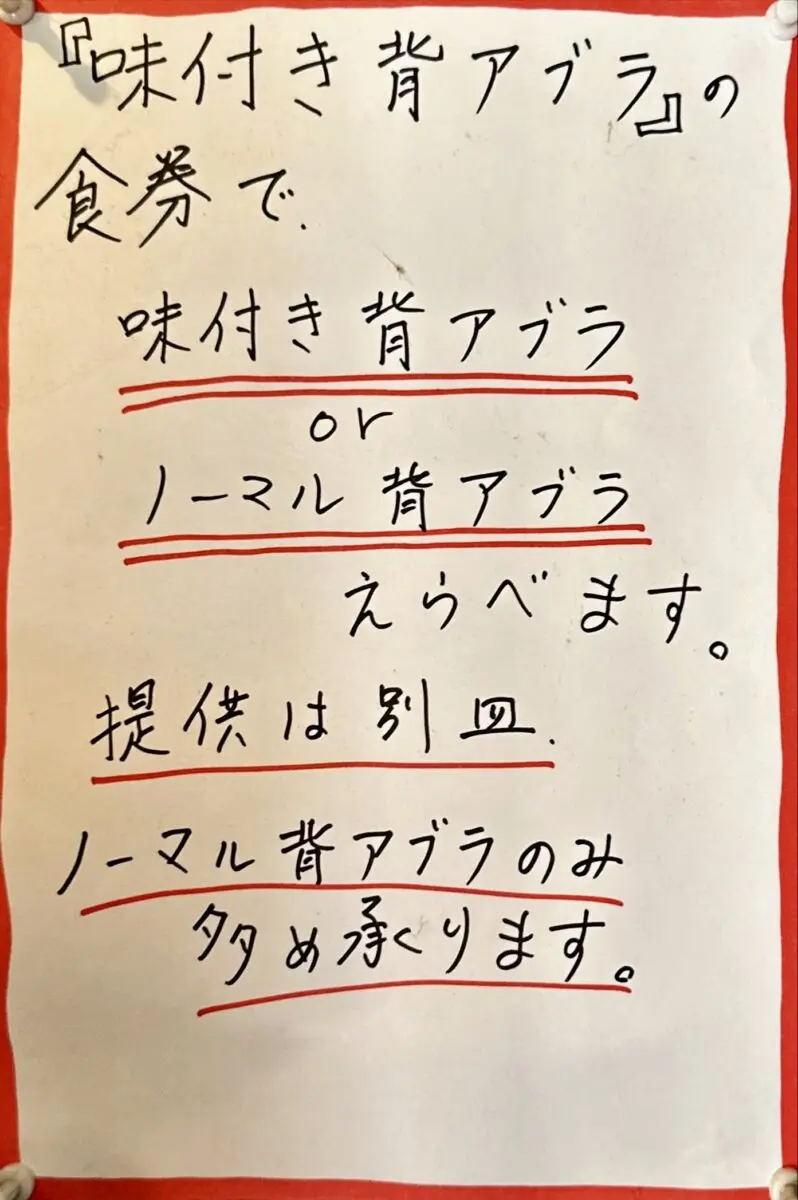 『味付き背アブラ』の
食券で、
味付き背アブラ
or
ノーマル背アブラ
えらべます。
提供は別皿、
ノーマル背アブラのみ
多め承くります。